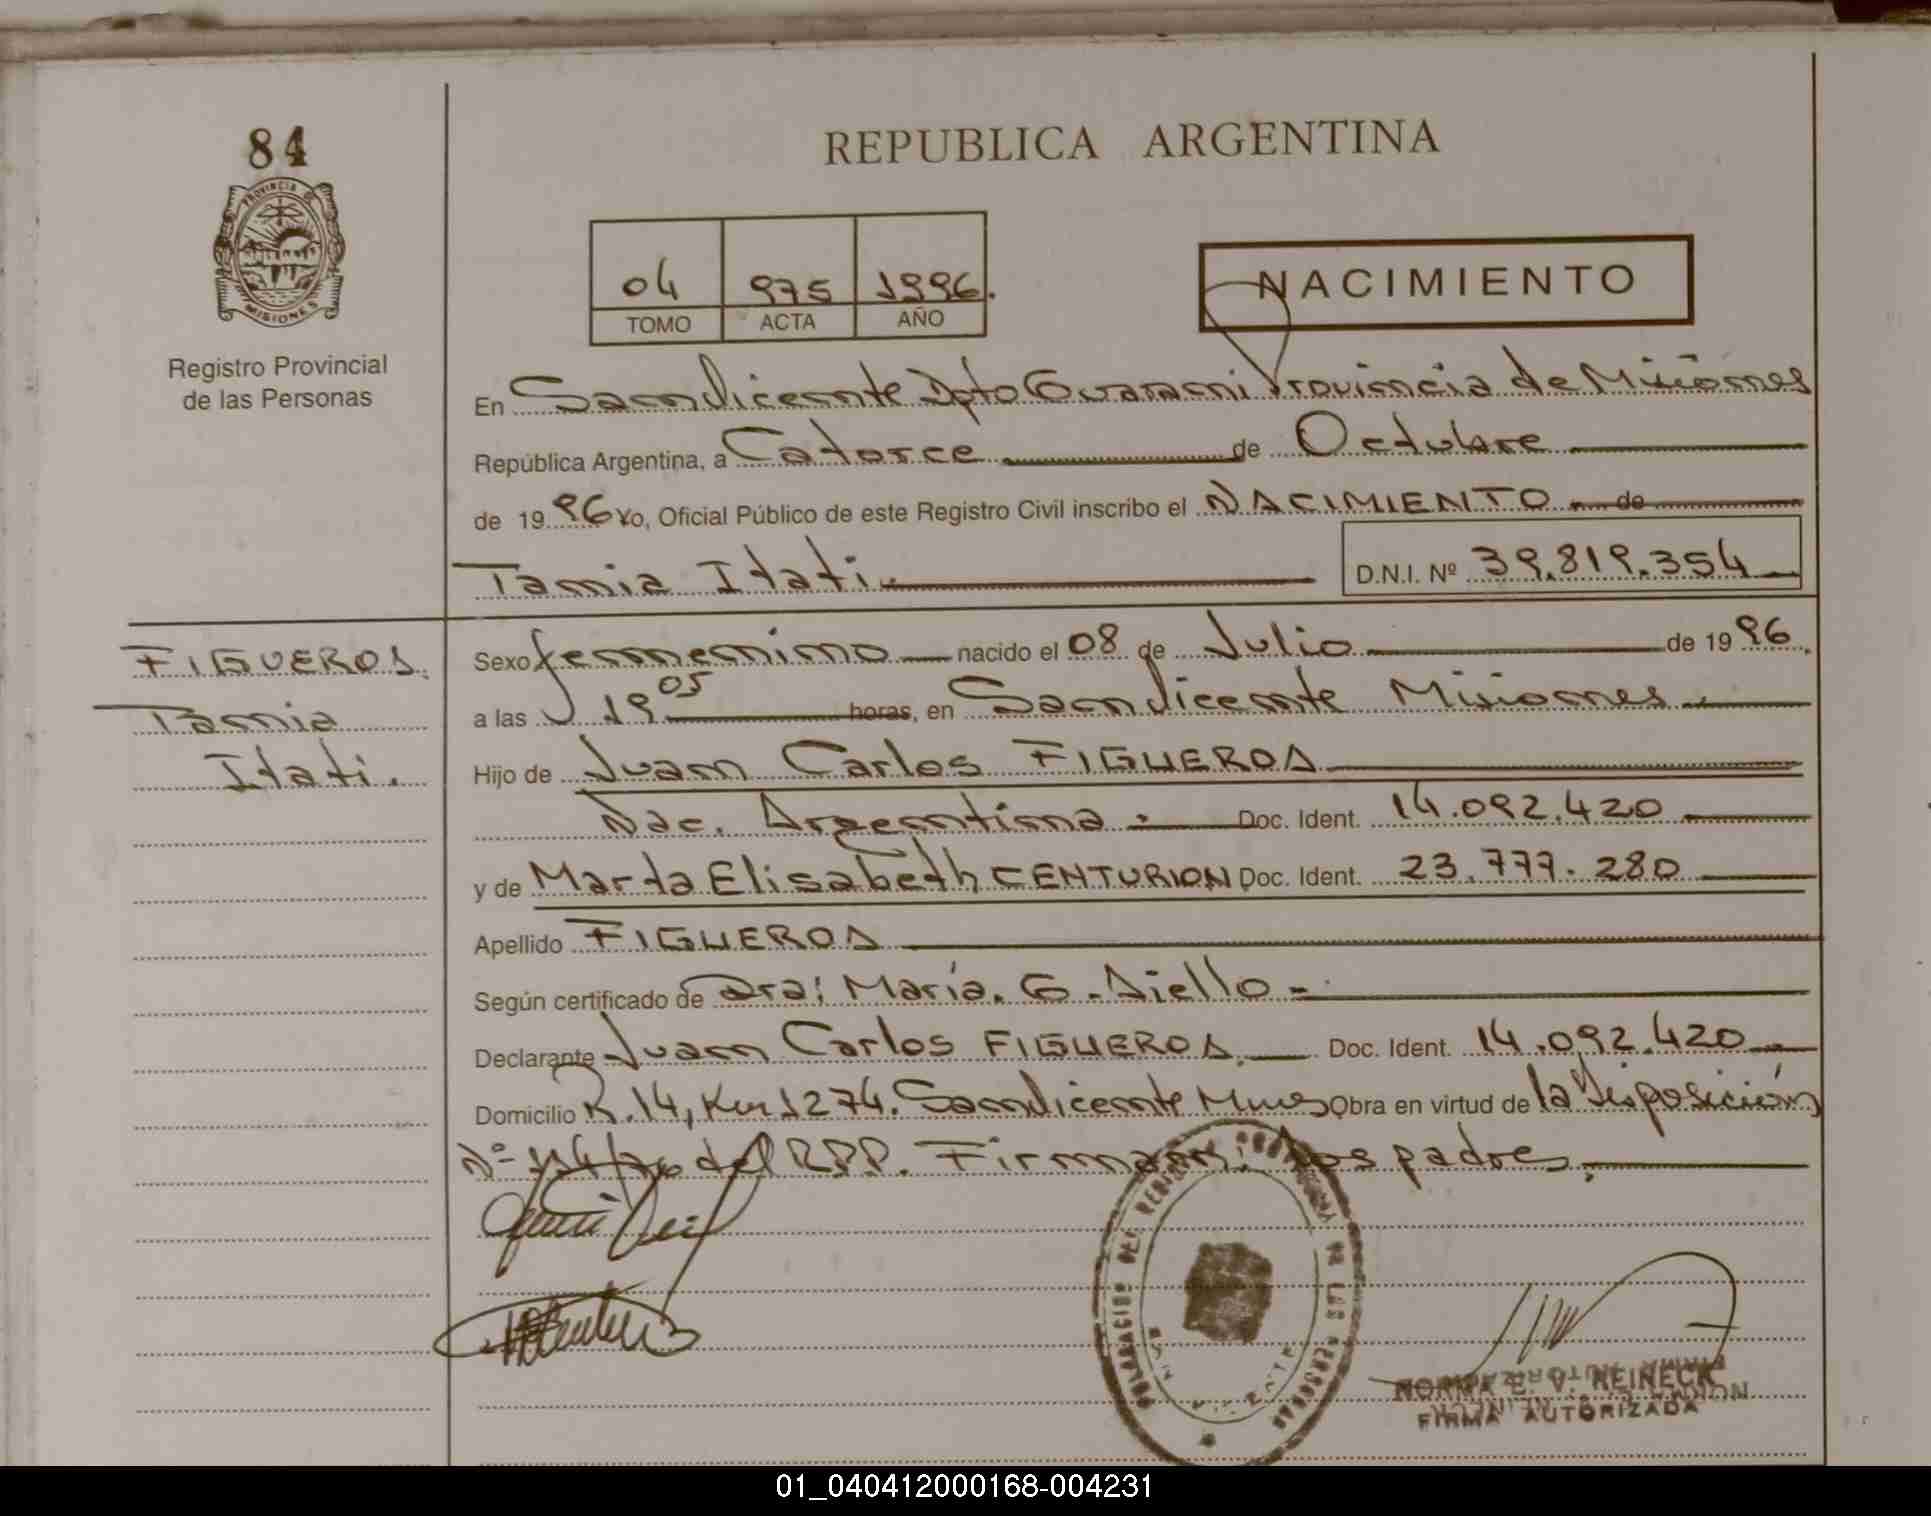 84
PROVINCIA DE
MISIONES
Registro Provincial
de las Personas
REPUBLICA ARGENTINA
04 975 1996.
TOMO ACTA AÑO
NACIMIENTO
En San Vicente Dpto Guarani Provincia de Misiones
República Argentina, a Catorce de Octubre
de 1996 Yo, Oficial Público de este Registro Civil inscribo el NACIMIENTO de
Tania Itati.
D.N.I. Nº 39.819.354
FIGUEROA
Tania
Itati.
Sexo femenino nacido el 08 de Julio de 1996.
a las 19 05 horas, en San Vicente Misiones.
Hijo de Juan Carlos FIGUEROA
Nac. Argentina. Doc. Ident. 14.092.420
y de Marta Elisabeth CENTURION Doc. Ident. 23.777.280
Apellido FIGUEROA
Según certificado de Dra: María. G. Aiello
Declarante Juan Carlos FIGUEROA. Doc. Ident. 14.092.420
Domicilio R.14, Km 1274. San Vicente Mnes Obra en virtud de la Disposición
Nº del R.P.P. Firman: los padres.
DE LAS PERSONAS
NORMA E. V. HEINECK
FIRMA AUTORIZADA
01_040412000168-004231